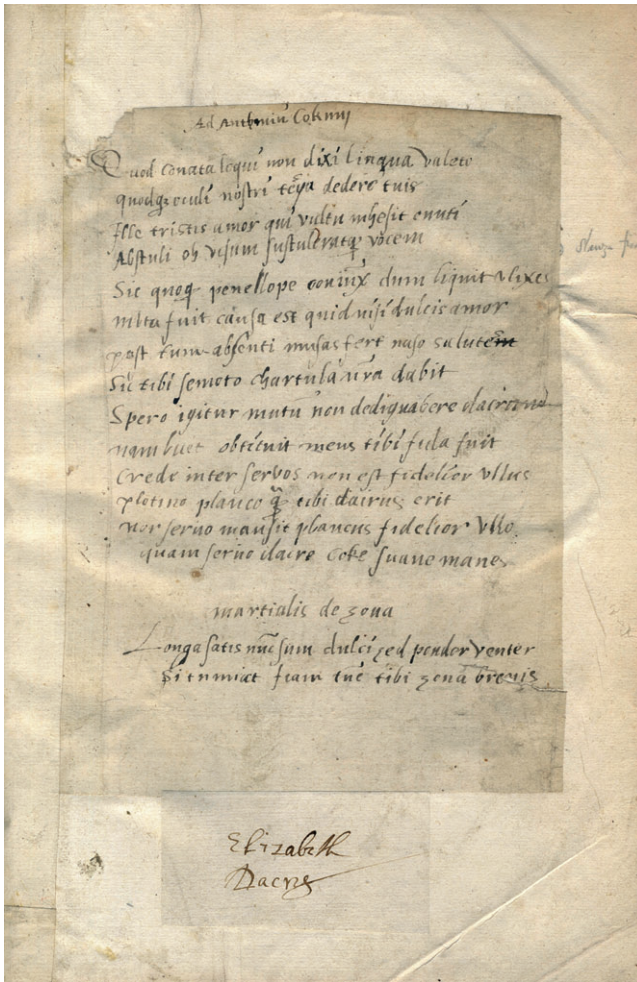 Ad Antoniū Cokum
Quod conata loqui non dixi lingua valeto
quodqꝫ oculi nostri tēga dedere tuis
Ille tristis amor qui vultu inhesit enuti
Abstuli oh visum sustuleratqꝫ vocem
Sic quoqꝫ penellope coniūx dum liquit vlixes
mlta fuit causa est quid nisi dulcis amor
post tum absenti musas fert naso salutem
Sic tibi semoto chartula nr̄a dabit
Spero igitur mutū non dedignabere
nam meus tibi fida fuit
Crede inter servos non est fidelior vllus
plotino planco q̄ tibi dacrus erit
nor servo mansit plancus fidelior vllo
quam servo dacre Coke suave manes
martialis de zona
Longa satis nūc sum dulci sed pondere venter
Si tumiat fiam tūc tibi zona brevis
Elizabeth
Dacres